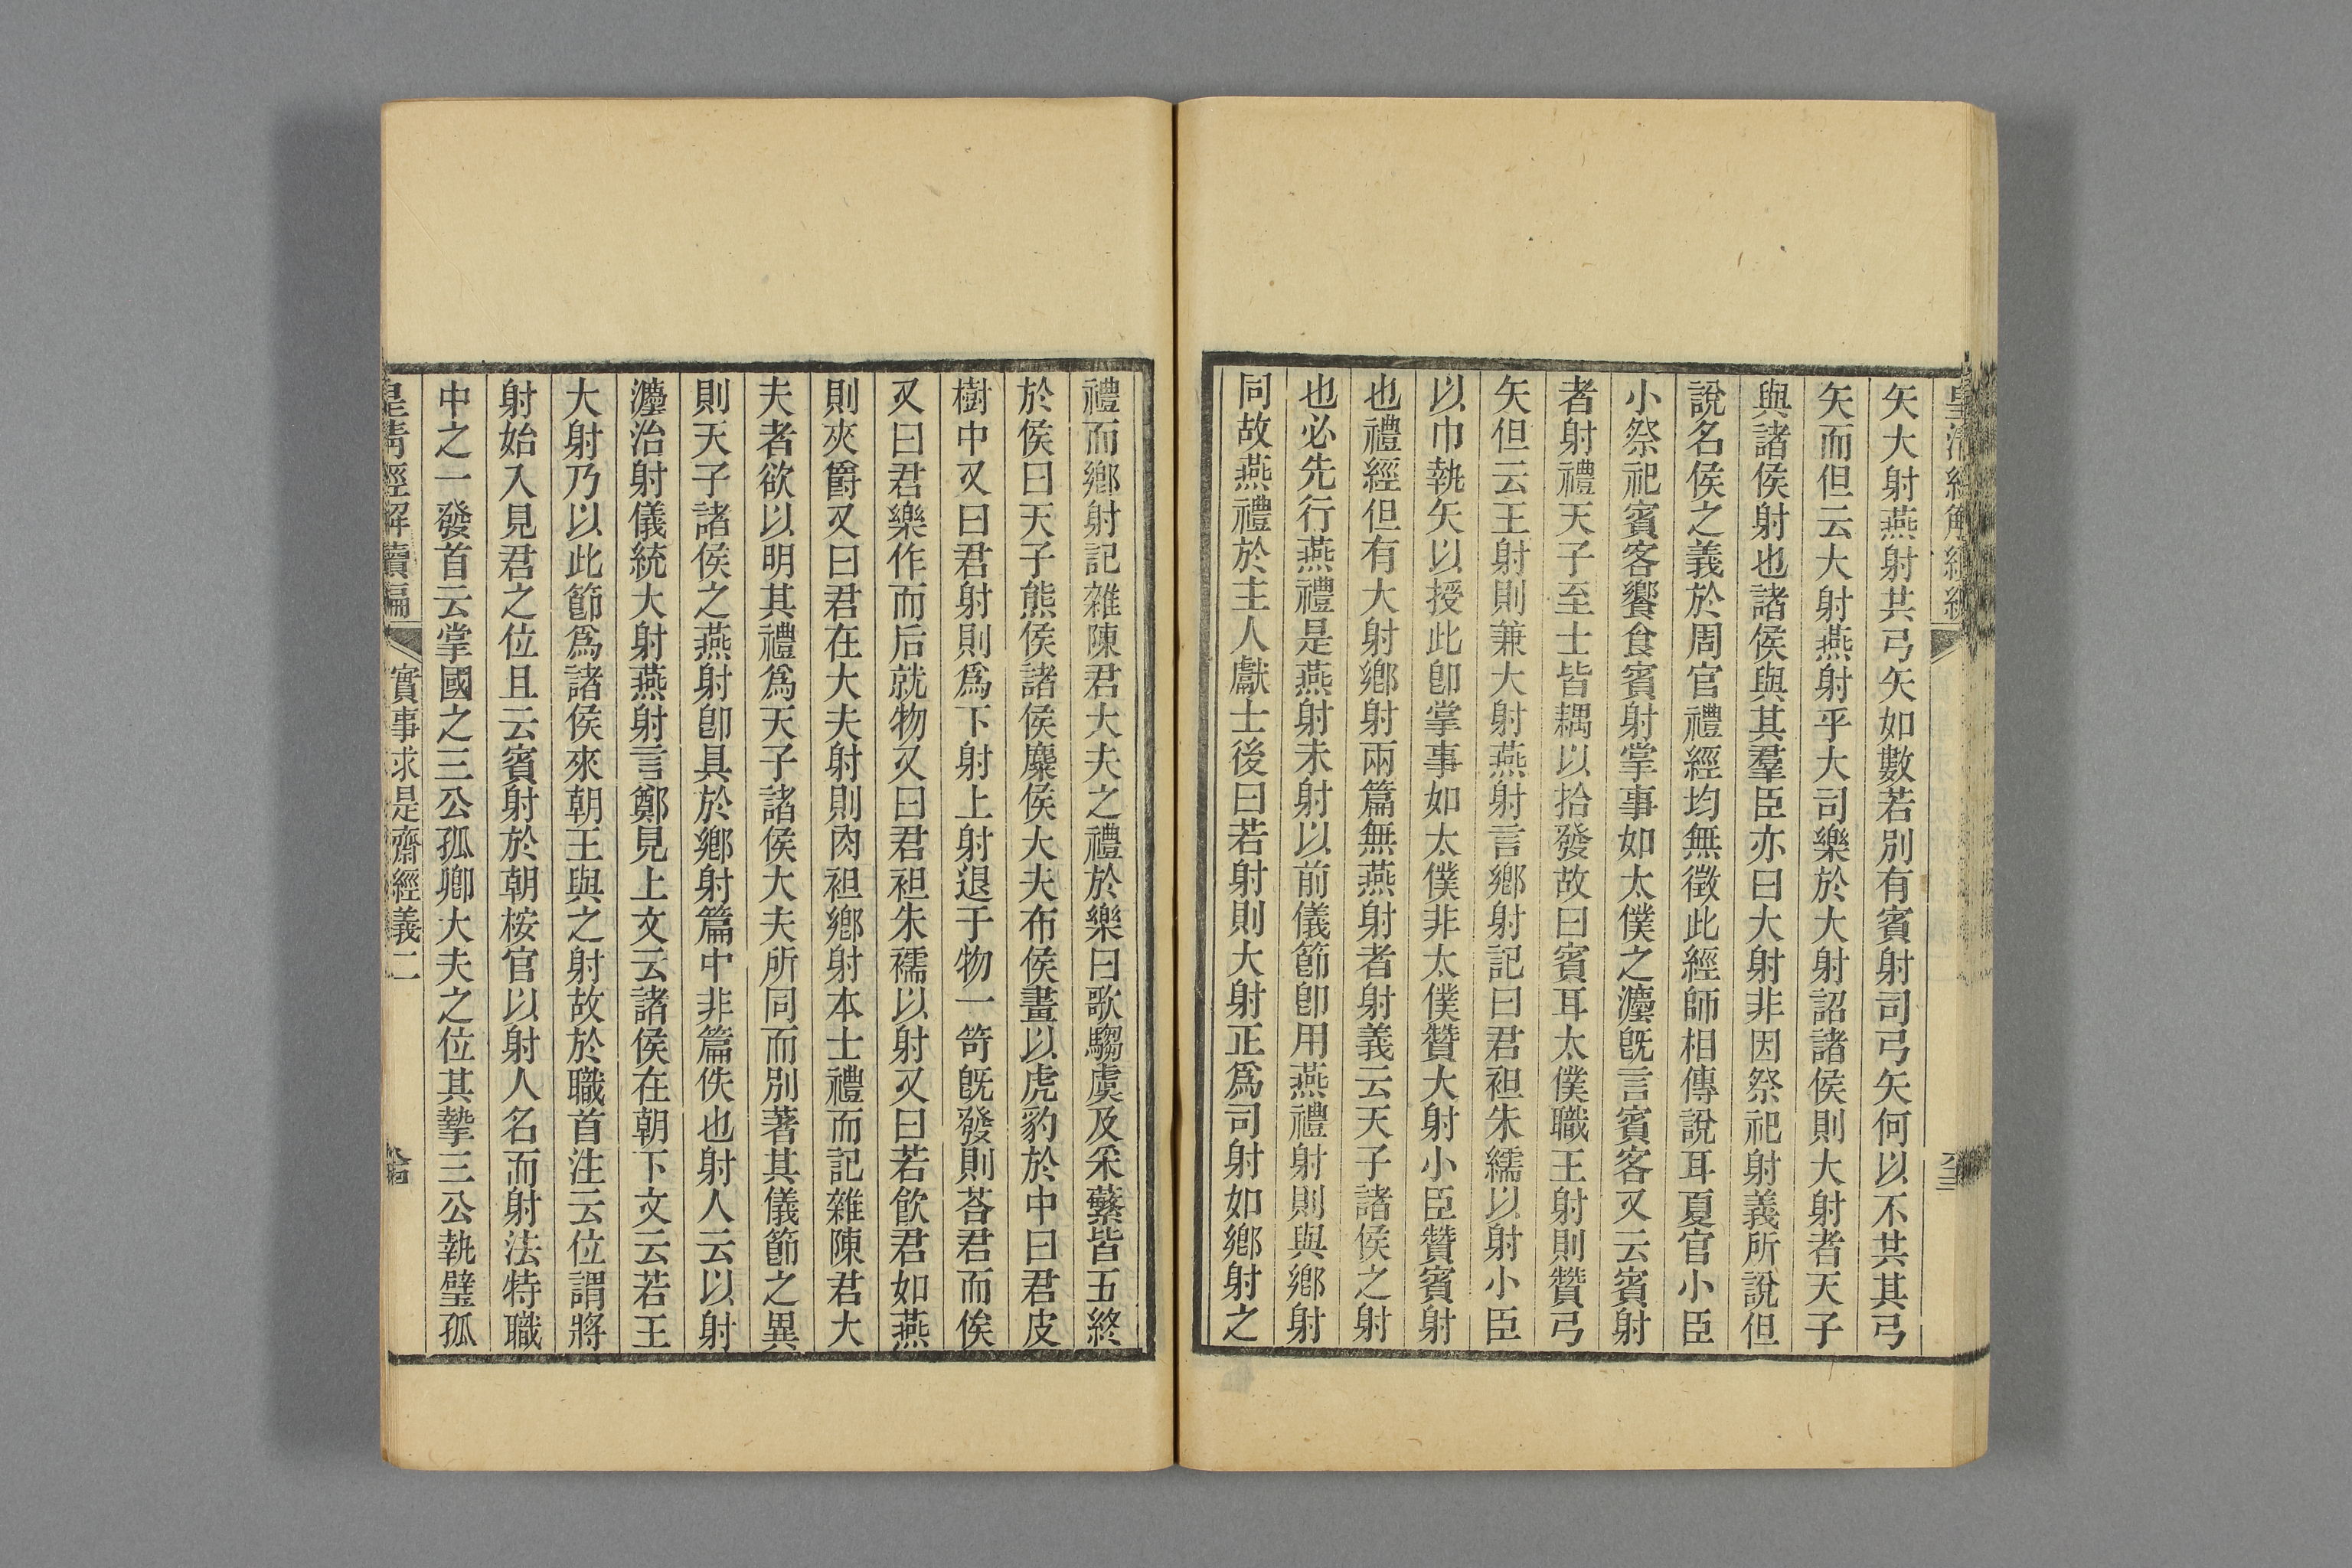 矢大射燕射共弓矢如數若別有賓射司弓矢何以不共其弓
矢而但云大射燕射乎大司樂於大射詔諸侯則大射者天子
與諸侯射也諸侯與其羣臣亦曰大射非因祭祀射義所說但
說名侯之義於周官禮經均無徵此經師相傳說耳夏官小臣
小祭祀賓客饗食賓射掌事如太僕之灋旣言賓客又云賓射
者射禮天子至士皆耦以拾發故曰賓耳太僕職王射則贊弓
矢但云王射則兼大射燕射言鄉射記曰君袒朱繻以射小臣
以巾執矢以授此卽掌事如太僕非太僕贊大射小臣贊賓射
也禮經但有大射鄉射兩篇無燕射者射義云天子諸侯之射
也必先行燕禮是燕射未射以前儀節卽用燕禮射則與鄉射
同故燕禮於主人獻士後曰若射則大射正爲司射如鄉射之
禮而鄉射記雜陳君大夫之禮於樂曰歌騶虞及采蘩皆五終
於侯曰天子熊侯諸侯麋侯大夫布侯畫以虎豹於中曰君皮
樹中又曰君射則爲下射上射退于物一笴旣發則荅君而俟
又曰君樂作而后就物又曰君袒朱襦以射又曰若飮君如燕
則夾爵又曰君在大夫射則肉袒鄉射本士禮而記雜陳君大
夫者欲以明其禮爲天子諸侯大夫所同而別著其儀節之異
則天子諸侯之燕射卽具於鄉射篇中非篇佚也射人云以射
灋治射儀統大射燕射言鄭見上文云諸侯在朝下文云若王
大射乃以此節爲諸侯來朝王與之射故於職首注云位謂將
射始入見君之位且云賓射於朝桉官以射人名而射法特職
中之一發首云掌國之三公孤卿大夫之位其摯三公執璧孤
皇清經解續編 實事求是齋經義二